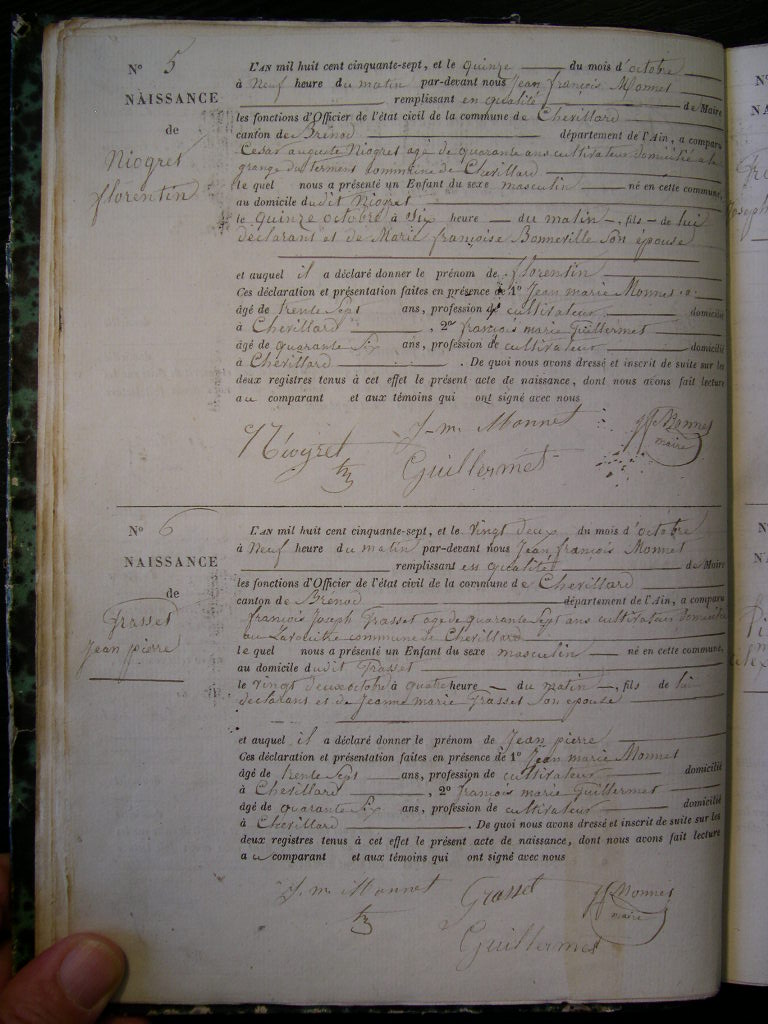 N° 5
NAISSANCE
de
Niogret
florentin
L'AN mil huit cent cinquante-sept, et le quinze du mois d'octobre
à Neuf heure du matin par-devant nous Jean françois Monnet
remplissant en qualité de Maire
les fonctions d'Officier de l'état civil de la commune de Chevillard
canton de Brénod département de l'Ain, a comparu
Cesar auguste Niogret agé de quarante ans cultivateur domicilié a la
grange du commune de Chevillard
le quel nous a présenté un Enfant du sexe masculin né en cette commune,
au domicile dudit Niogret
le quinze octobre à six heure du matin, fils de lui
déclarant et de Marie françoise Bonneville son épouse
et auquel il a déclaré donner le prénom de florentin
Ces déclaration et présentation faites en présence de 1° Jean marie Monnet
âgé de trente sept ans, profession de cultivateur domicilié
à Chevillard, 2° françois marie Guillermet
âgé de quarante six ans, profession de cultivateur domicilié
à Chevillard. De quoi nous avons dressé et inscrit de suite sur les
deux registres tenus à cet effet le présent acte de naissance, dont nous avons fait lecture
au comparant et aux témoins qui ont signé avec nous
Niogret J-m. Monnet Monnet
maire
Guillermet
N° 6
NAISSANCE
de
Grasset
Jean pierre
L'AN mil huit cent cinquante-sept, et le vingt deux du mois d'octobre
à Neuf heure du matin par-devant nous Jean françois Monnet
remplissant en qualité de Maire
les fonctions d'Officier de l'état civil de la commune de Chevillard
canton de Brénod département de l'Ain, a comparu
françois Joseph Grasset age de quarante sept ans cultivateur domicilié
au commune de Chevillard
le quel nous a présenté un Enfant du sexe masculin né en cette commune,
au domicile dudit Grasset
le vingt deux octobre à quatre heure du matin, fils de lui
declarant et de Jeanne marie Grasset son épouse
et auquel il a déclaré donner le prénom de Jean pierre
Ces déclaration et présentation faites en présence de 1° Jean marie Monnet
âgé de trente sept ans, profession de cultivateur domicilié
à Chevillard, 2° françois marie Guillermet
âgé de quarante six ans, profession de cultivateur domicilié
à Chevillard. De quoi nous avons dressé et inscrit de suite sur les
deux registres tenus à cet effet le présent acte de naissance, dont nous avons fait lecture
au comparant et aux témoins qui ont signé avec nous
J. m. Monnet Grasset Monnet
maire
Guillermet